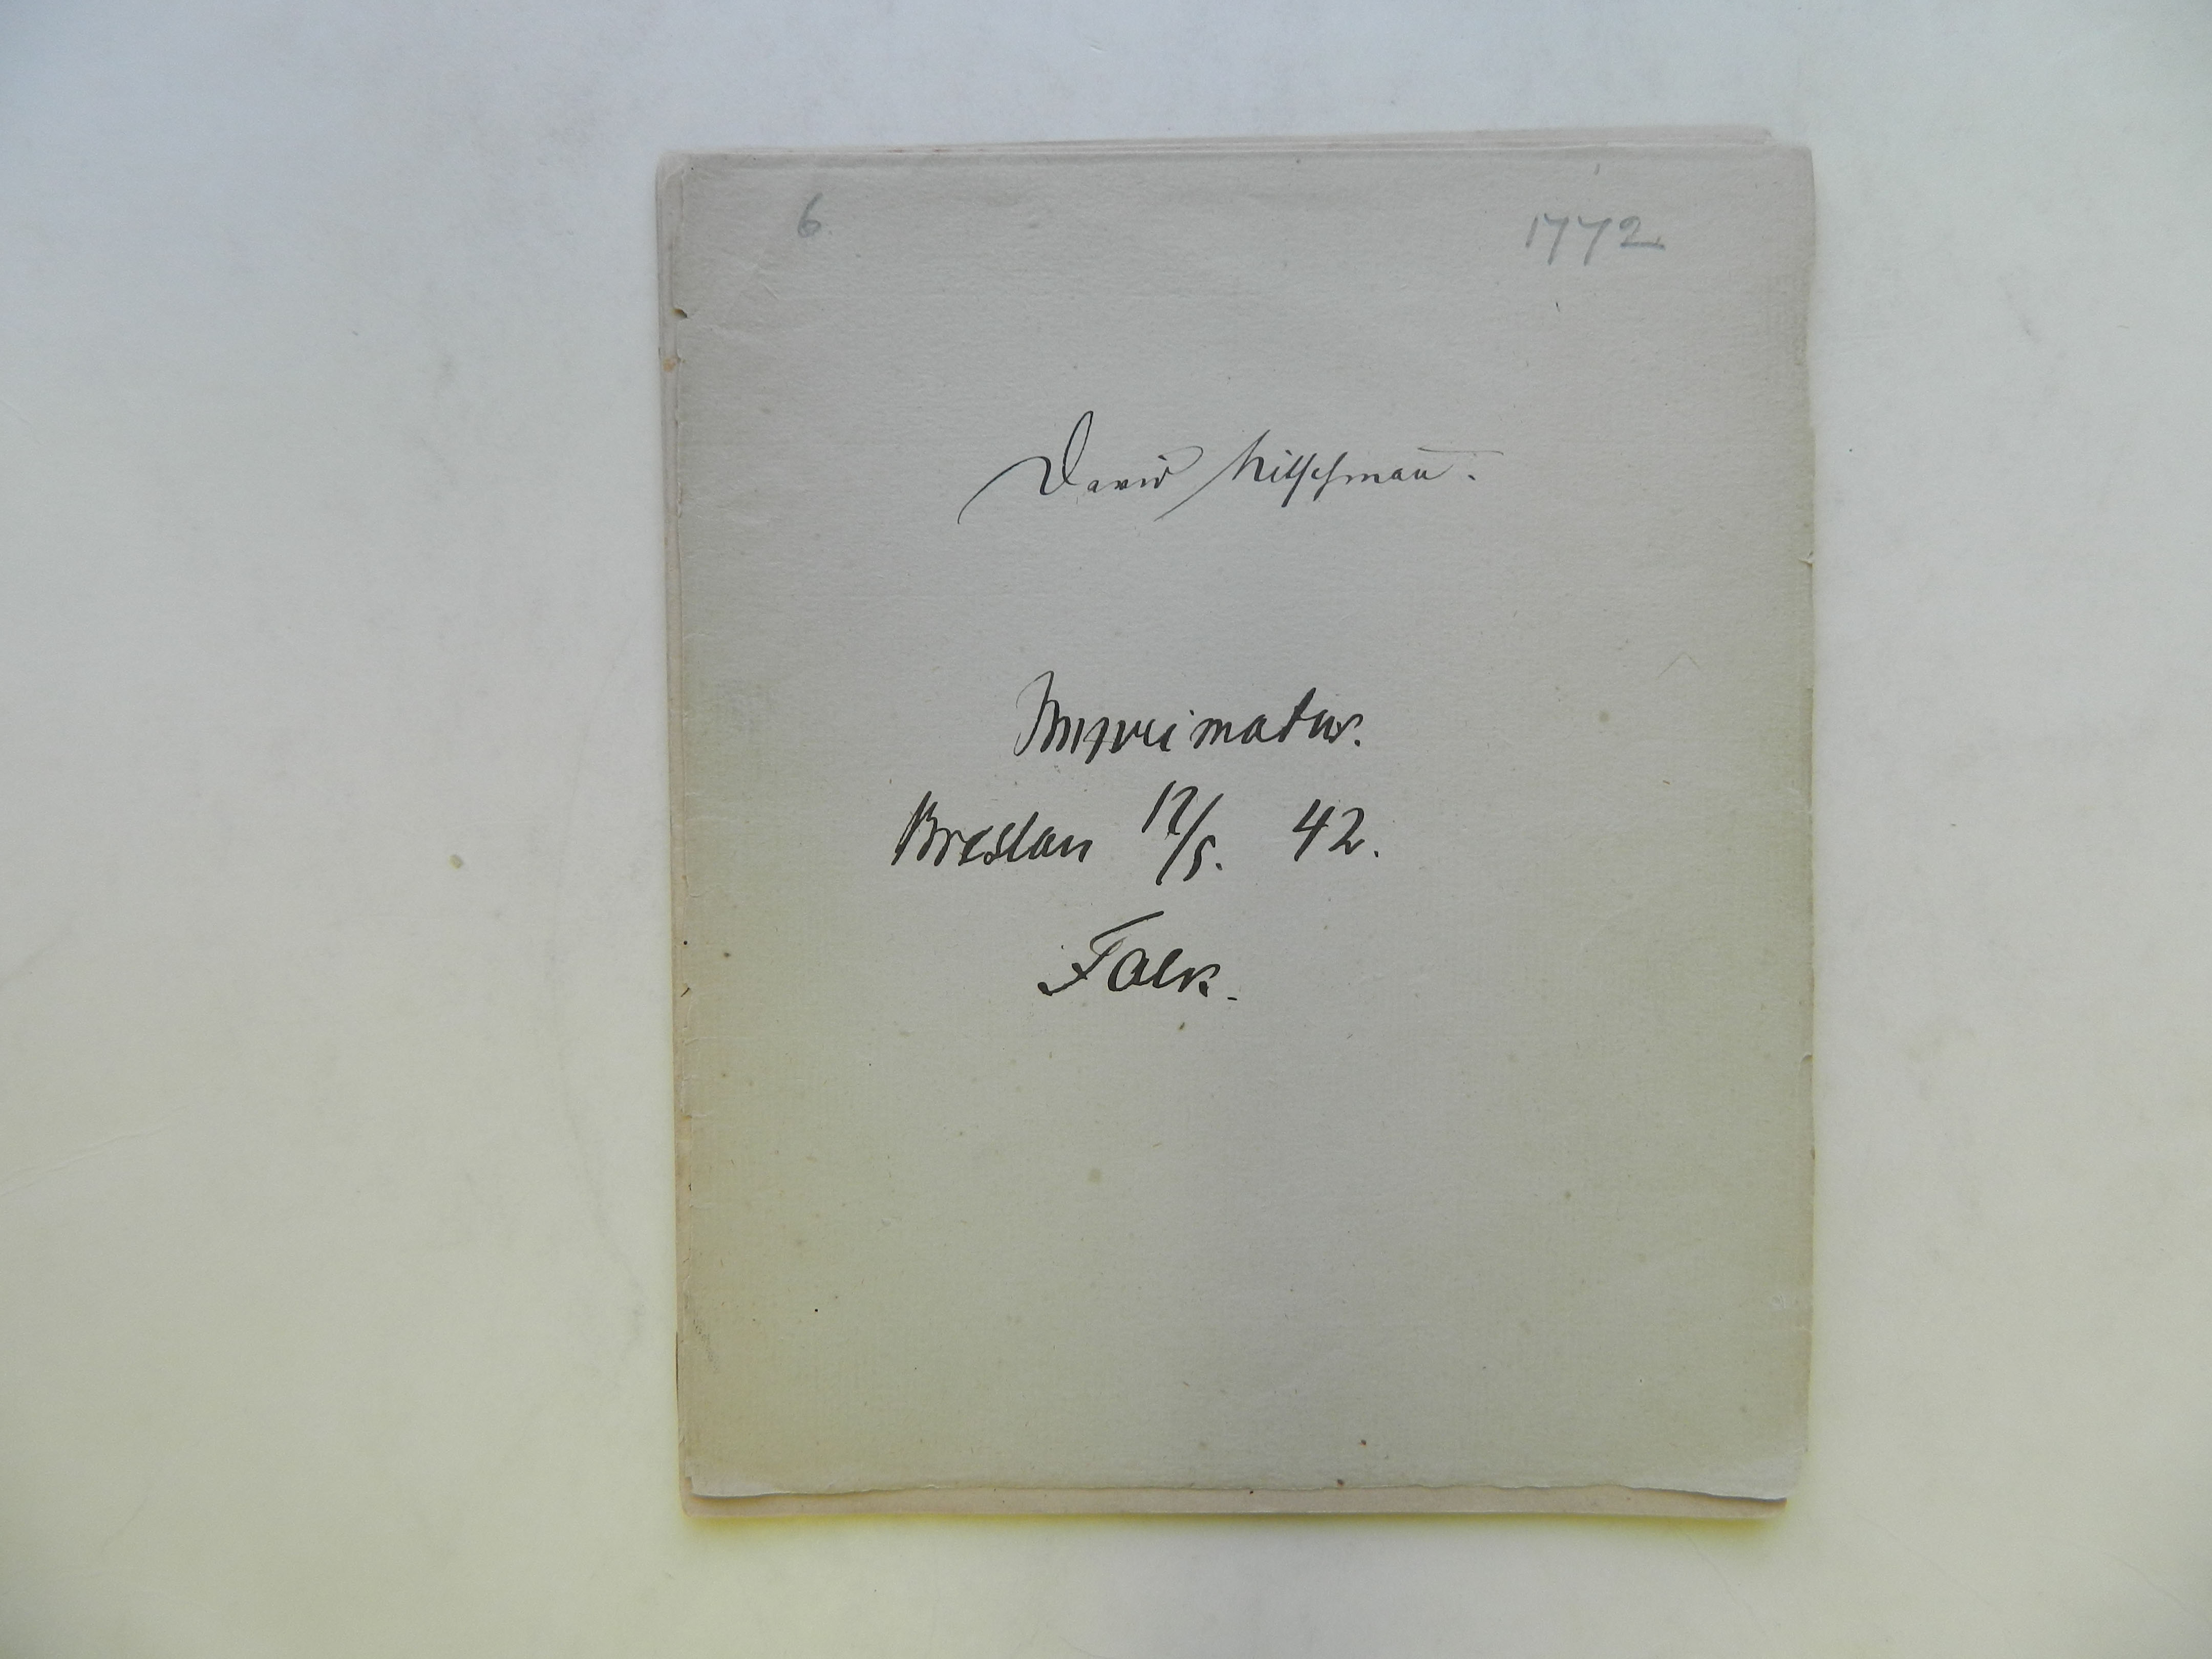 6. 1772.
David Nitschmañ.
Imprimatur.
Breslau 12/5. 42.
Falk.